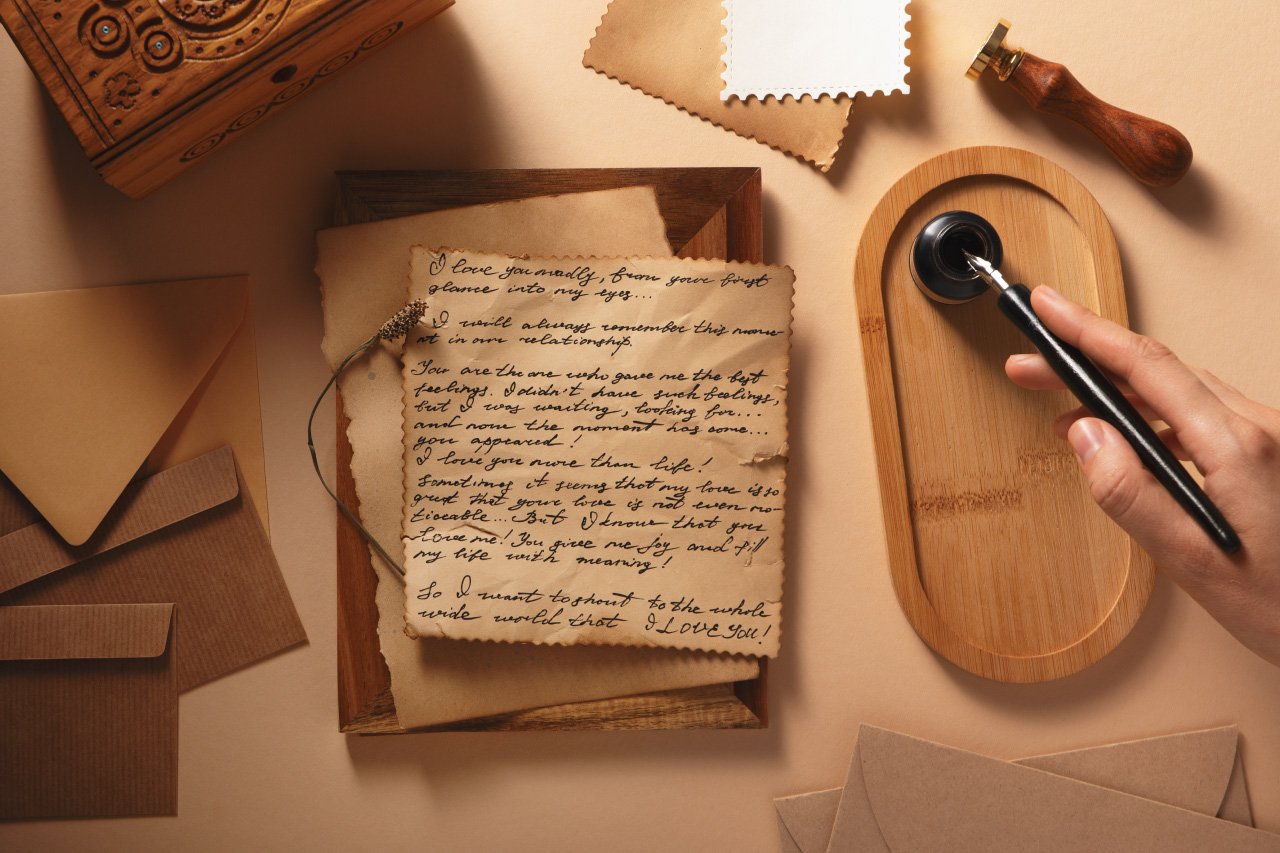 I love you madly, from your first
glance into my eyes...
I will always remember this mome-
nt in our relationship.
You are the one who gave me the best
feelings. I didn't have such feelings,
but I was waiting, looking for...
and now the moment has come...
you appeared!
I love you more than life!
Sometimes it seems that my love is so
great that your love is not even no-
ticeable... But I know that you
Love me! You give me joy and fill
my life with meaning!
So I want to shout to the whole
wide world that I LOVE YOU!